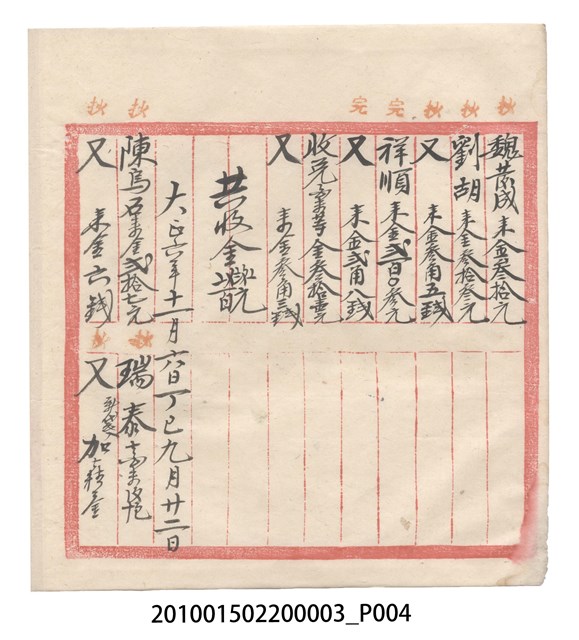 抄 抄 抄 完 完 抄 抄
魏茂成 来金叁拾元
劉胡 来金叁拾叁元
又 来金叁角五錢
祥順 来金弍百〇叁元
又 来金弍角八錢
收兑 等金叁拾壹元
又 来金叁角三錢
共收金 元
大正六年十一月六日丁巳九月廿二日
陳烏石 金弍拾七元
又 来金六錢
抄 抄
瑞泰
又 加 金
201001502200003_P004